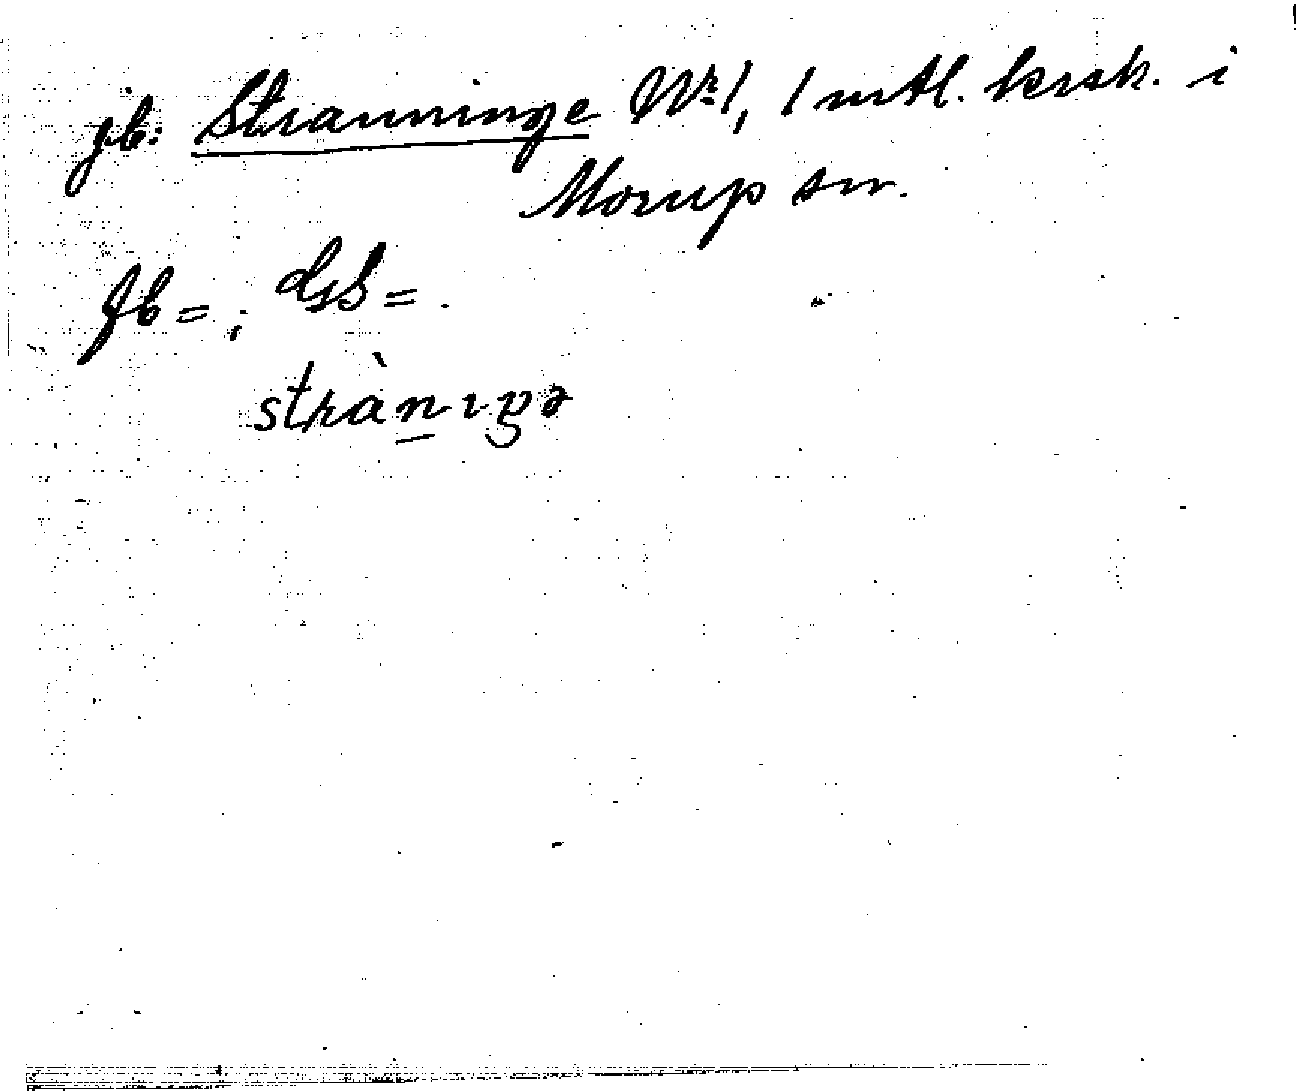 jb: Stranninge Nr 1, 1 mtl. krsk. i
Morup sn.
fb = ; dsb = .
strànıŋə